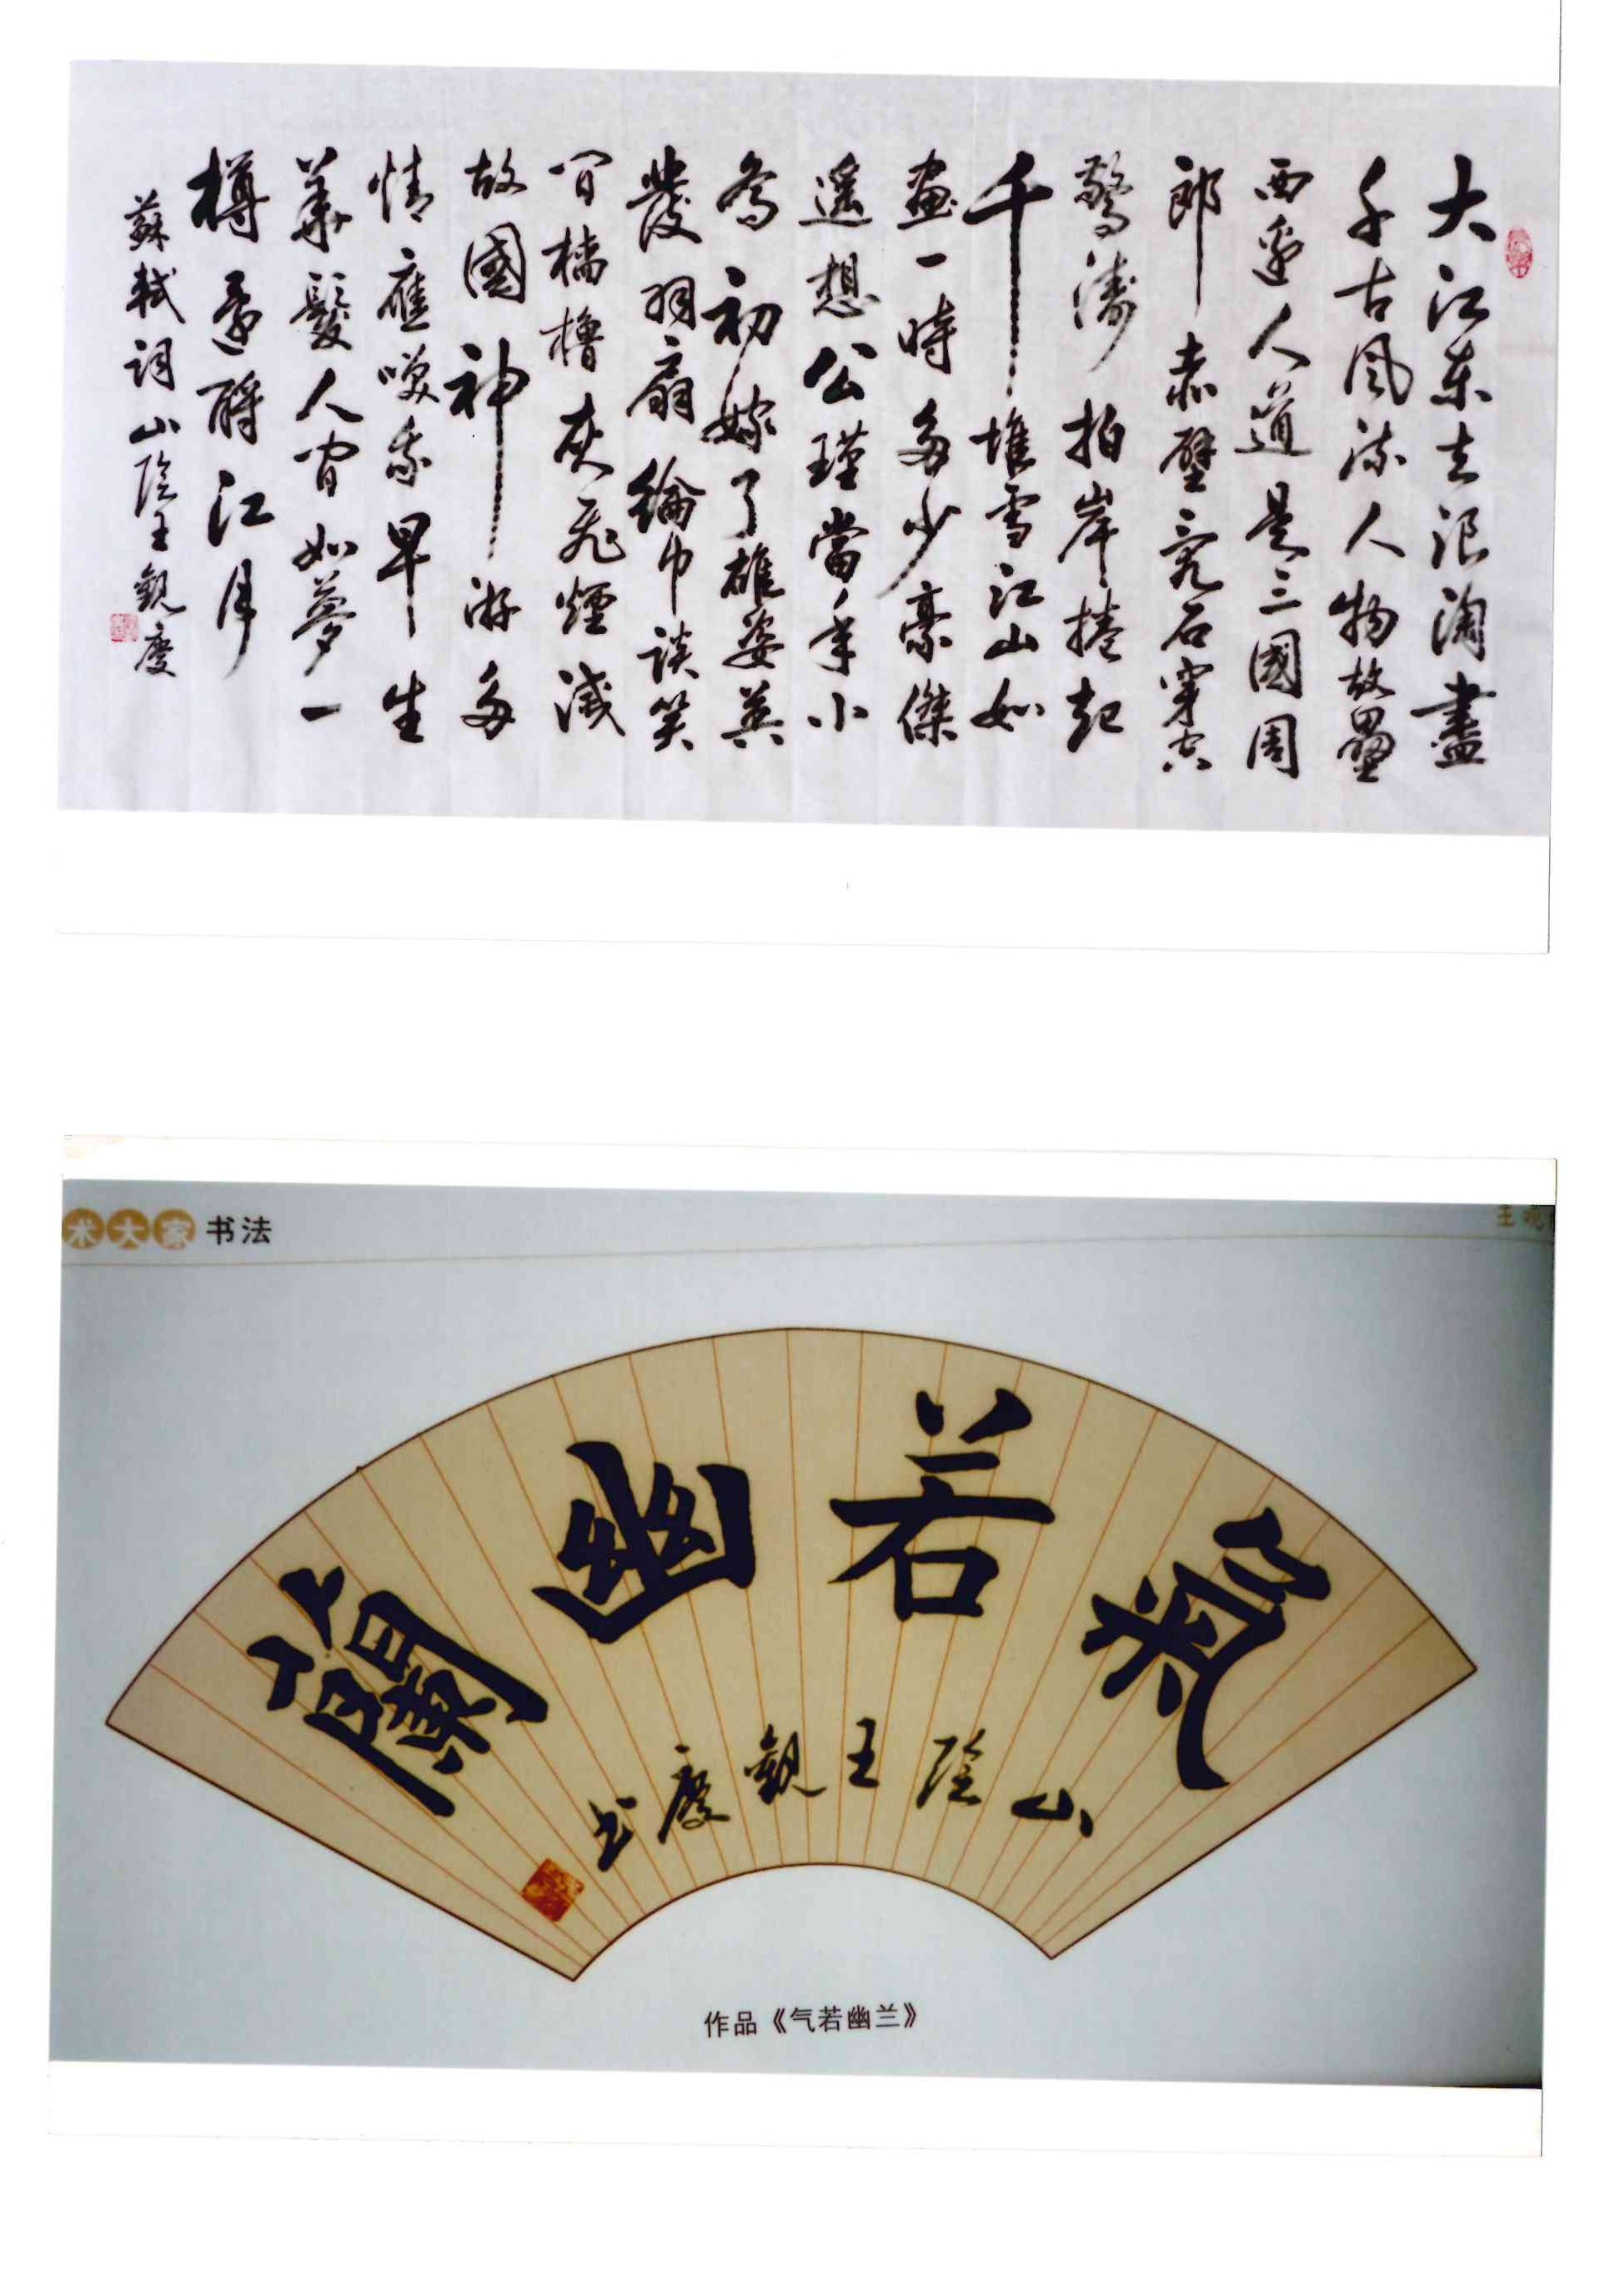 大江東去浪淘盡
千古風流人物故壘
西邊人道是三國周
郎赤壁亂石穿空
驚濤拍岸捲起
千堆雪江山如
畫一時多少豪傑
遙想公瑾當年小
喬初嫁了雄姿英
發羽扇綸巾談笑
間檣櫓灰飛煙滅
故國神游多
情應喚我早生
華髮人間如夢一
樽還酹江月
蘇軾詞山陰王觀慶
术大家书法
王观
氣若幽蘭
山陰王觀慶书
作品《气若幽兰》